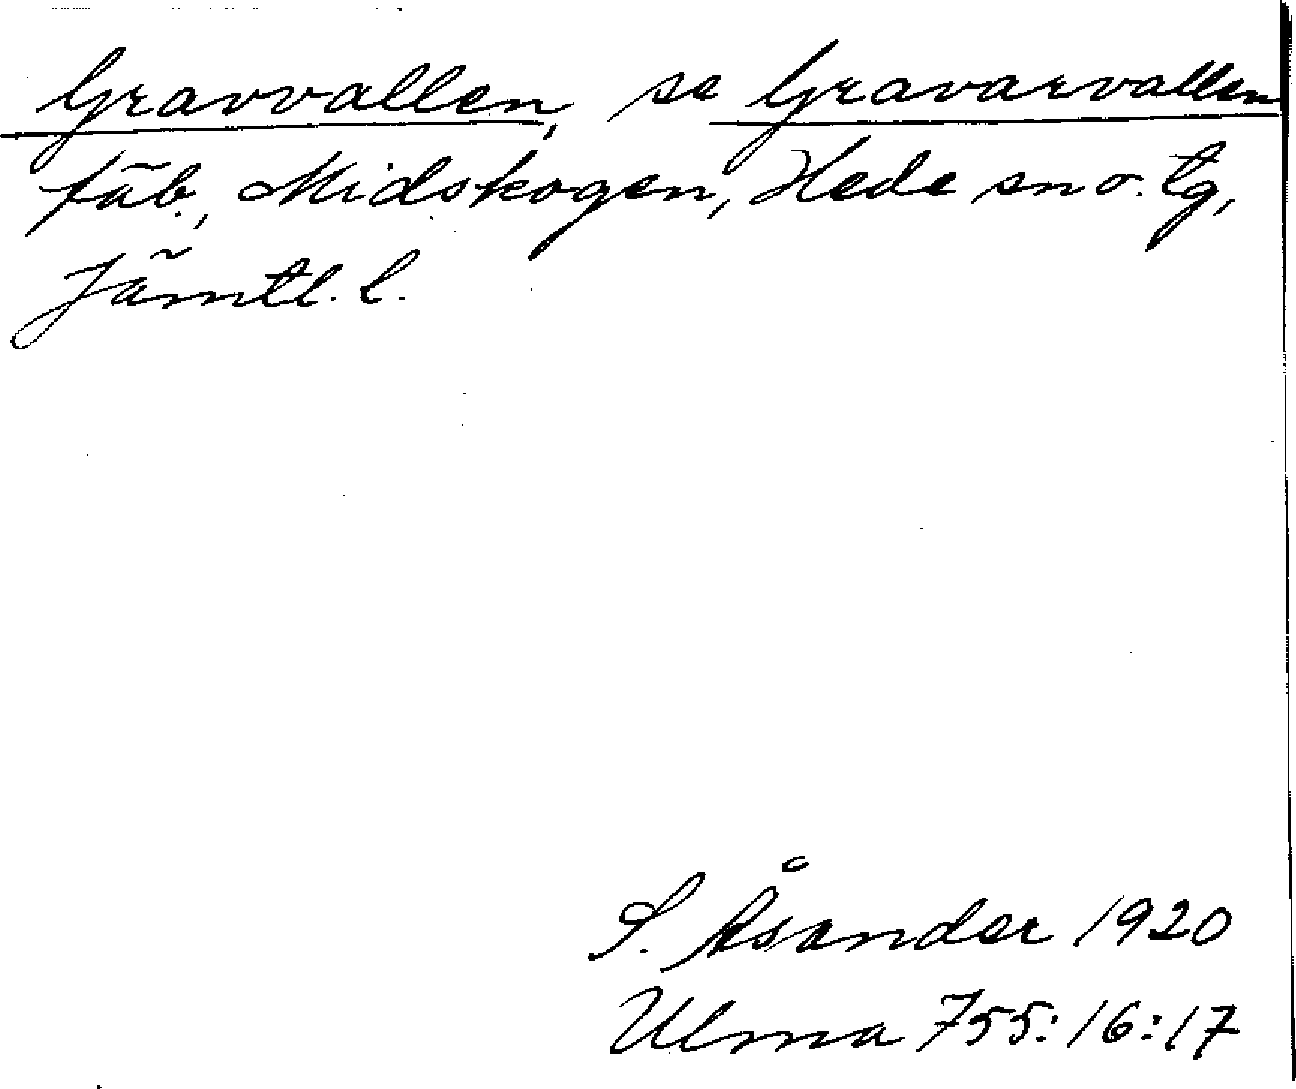 Gravvallen, se Gravarvallen
fäb., Midskogen, Hede sn o. tg,
Jämtl. l.
S. Åsander 1920
Ulma 755:16:17